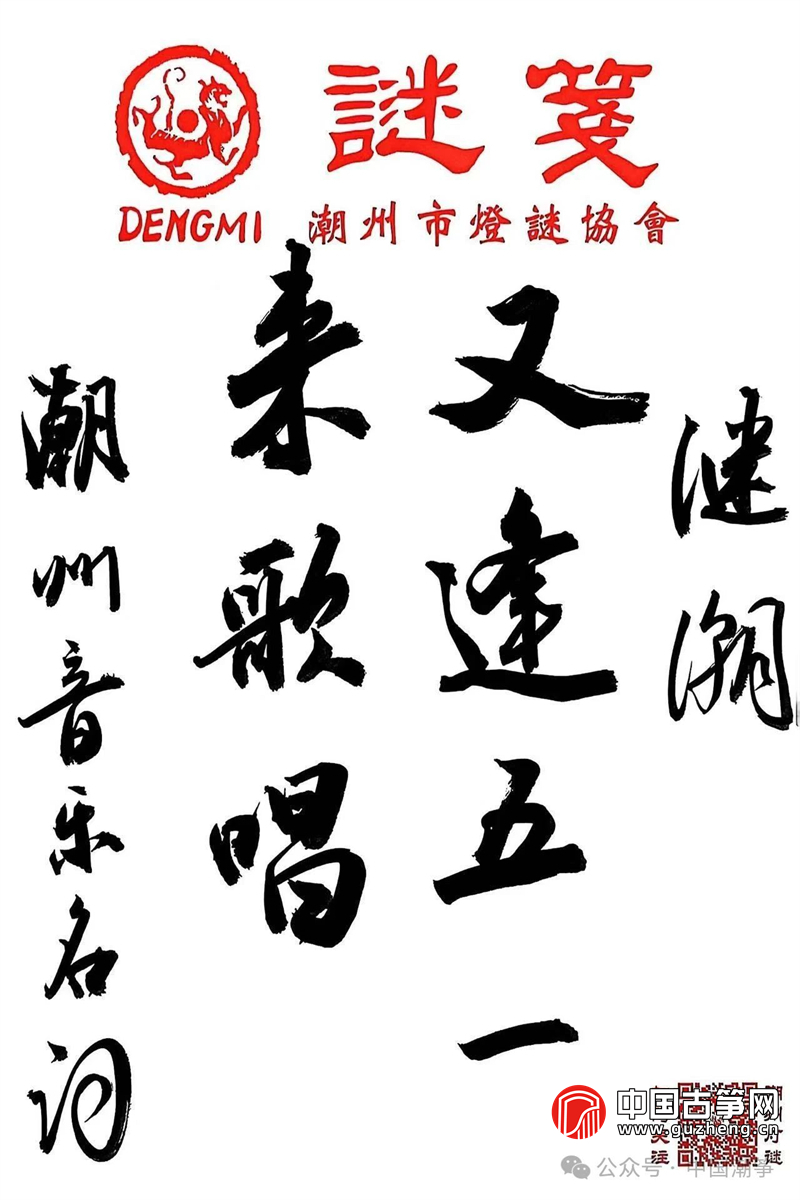 謎箋
DENGMI 潮州市燈謎協會
谜潮
又逢五一
来歌唱
潮州音乐名词
中国古筝网
www.guzheng.cn
公众号·中国潮筝